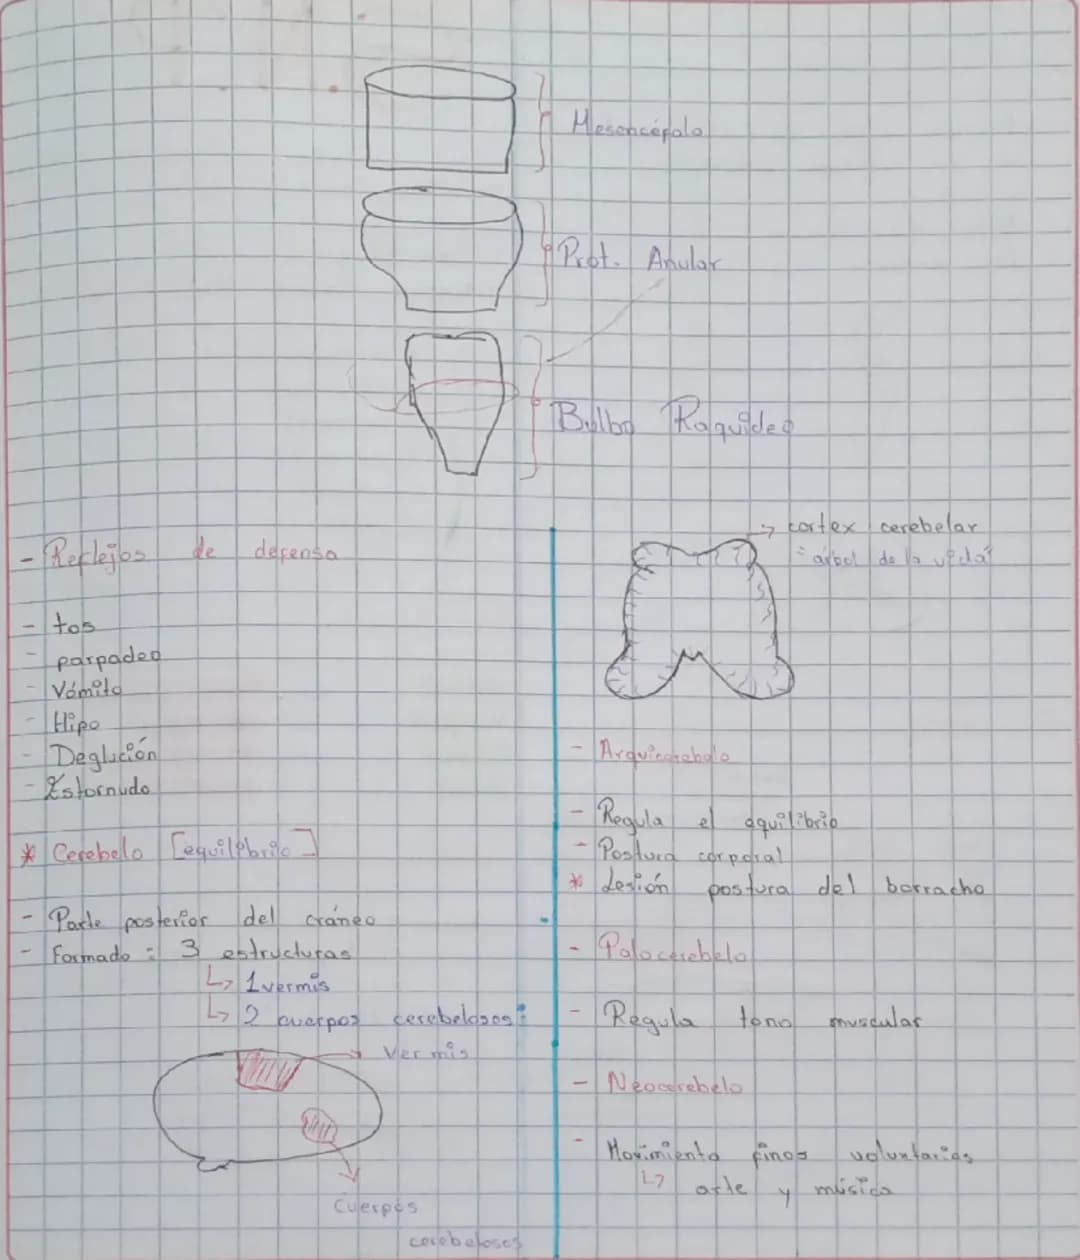 Mesencéfalo
Prot. Anular
Bulbo Raquideo
- Reflejos de defensa
- tos
- parpadeo
- Vómito
- Hipo
- Deglución
- Estornudo
* Cerebelo [equilibrio]
- Parte posterior del cráneo
- Formado: 3 estructuras
↳ 1 vermis
↳ 2 cuerpos cerebelosos:
→ Vermis
Cuerpos
cerebelosos
→ cortex cerebelar
"árbol de la vida"
- Arquicerebelo
- Regula el equilibrio
- Postura corporal
* Lesión postura del borracho
- Paleocerebelo
- Regula tono muscular
- Neocerebelo
- Movimiento finos voluntarios
↳ arte y música